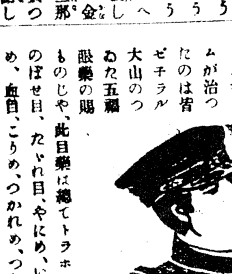 ううう
那金し
ムが治つ
たのは皆
ピチラル
大山のつ
ゐた五福
眼藥の賜
ものじや、此目藥は總てトラホ
のぼせ目、たゞれ目、やにめ、い
め、血目、こりめ、つかれめ、つ